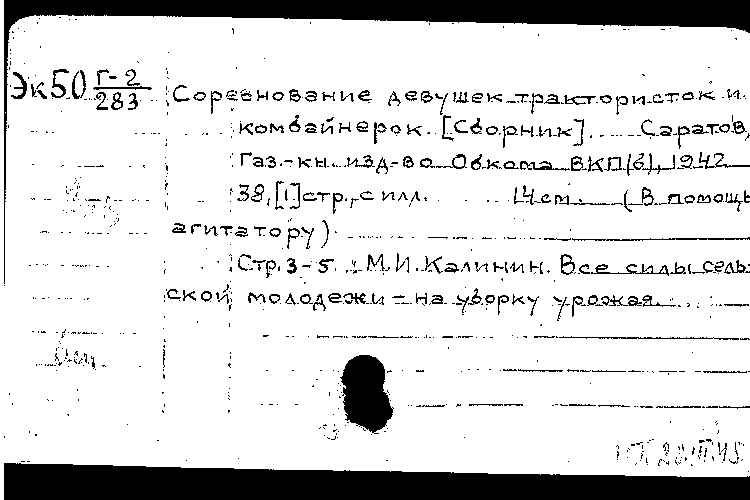 Эк50 Г-2
283
Соревнование девушек трактористок и
комбайнерок. [Сборник]. Саратов,
Газ.-кн. изд-во Обкома ВКП(б), 1942
38,[1]стр., с илл. 14cm. (В помощь
агитатору)
Стр. 3-5 : М.И. Калинин. Все силы сель-
ской молодежи - на уборку урожая.